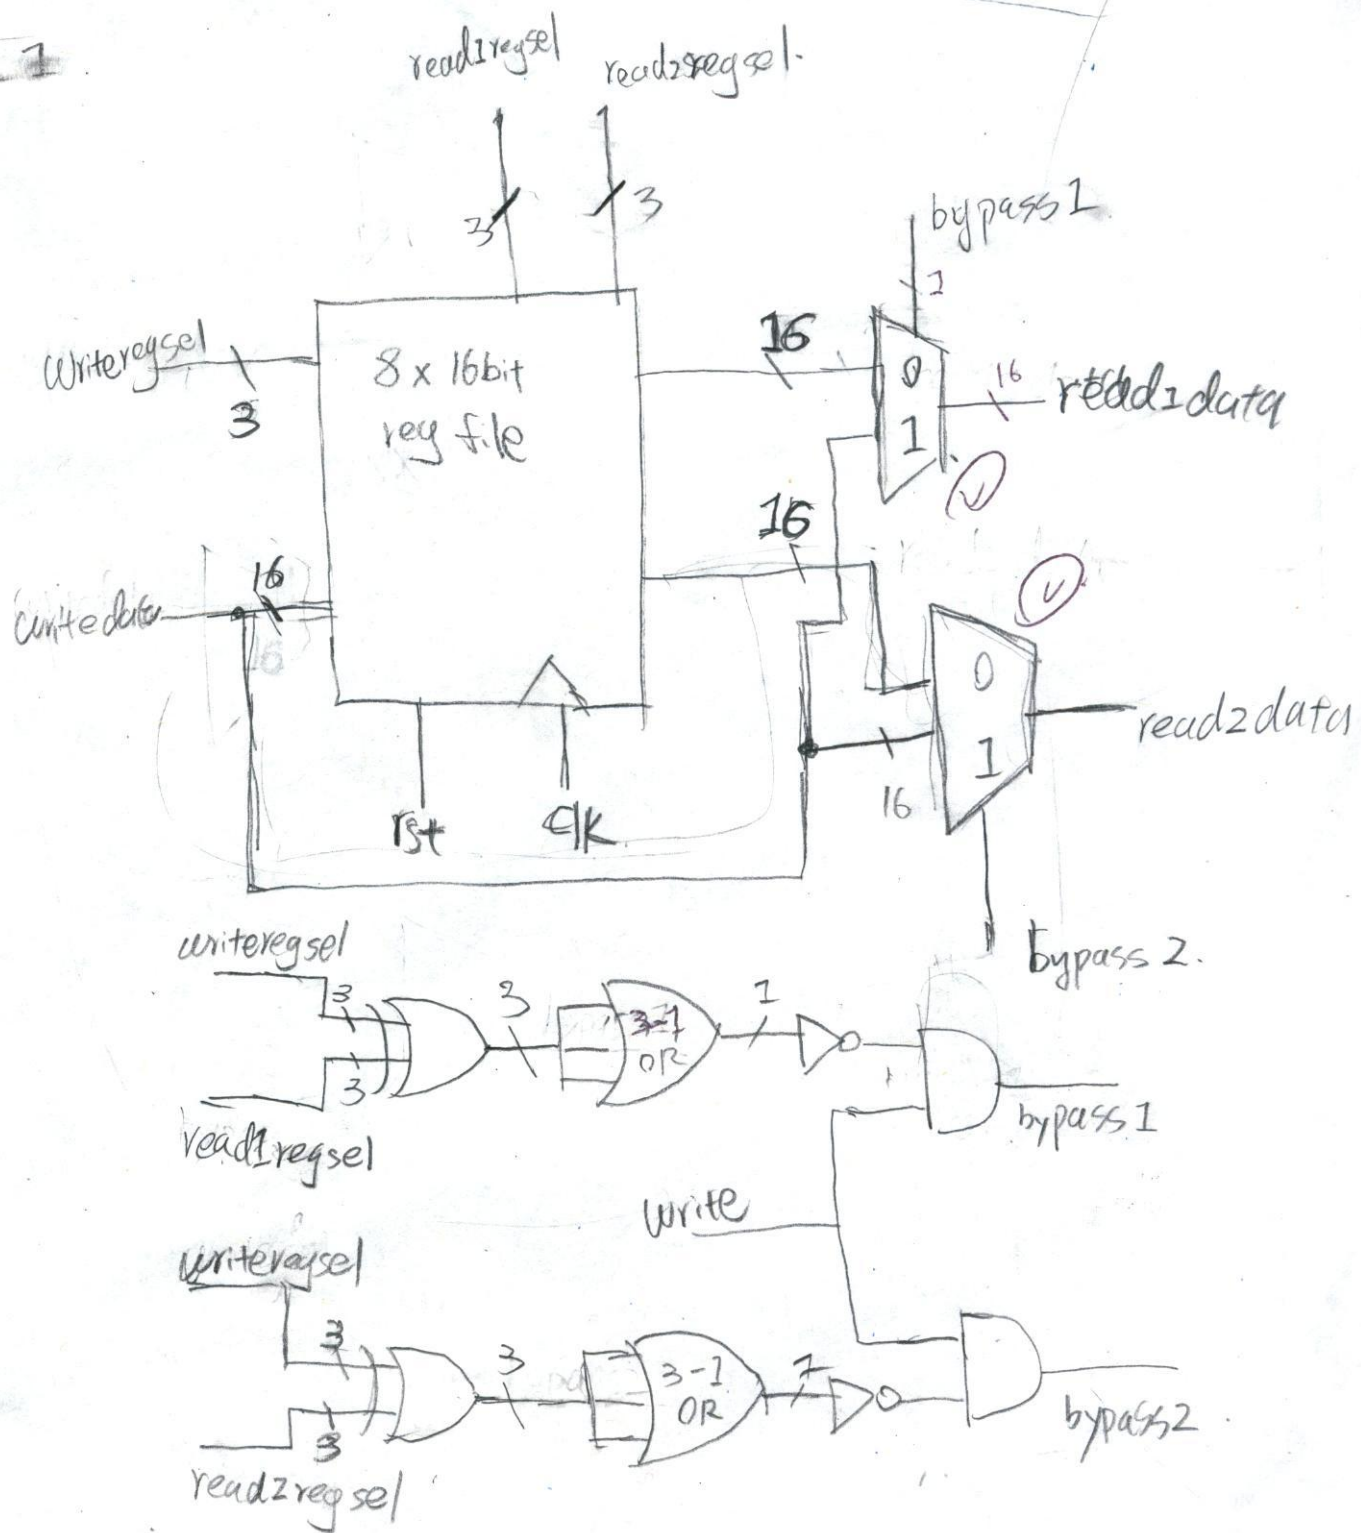 1
read1regsel
read2regsel.
3
3
bypass1
1
writeregsel
3
8 x 16bit
reg file
16
0
1
16
read1data
16
writedata
16
16
0
1
read2data
16
rst
clk
bypass 2.
writeregsel
3
3
read1regsel
3
3-1
OR
1
bypass1
write
writeregsel
3
3
read2regsel
3
3-1
OR
1
bypass2